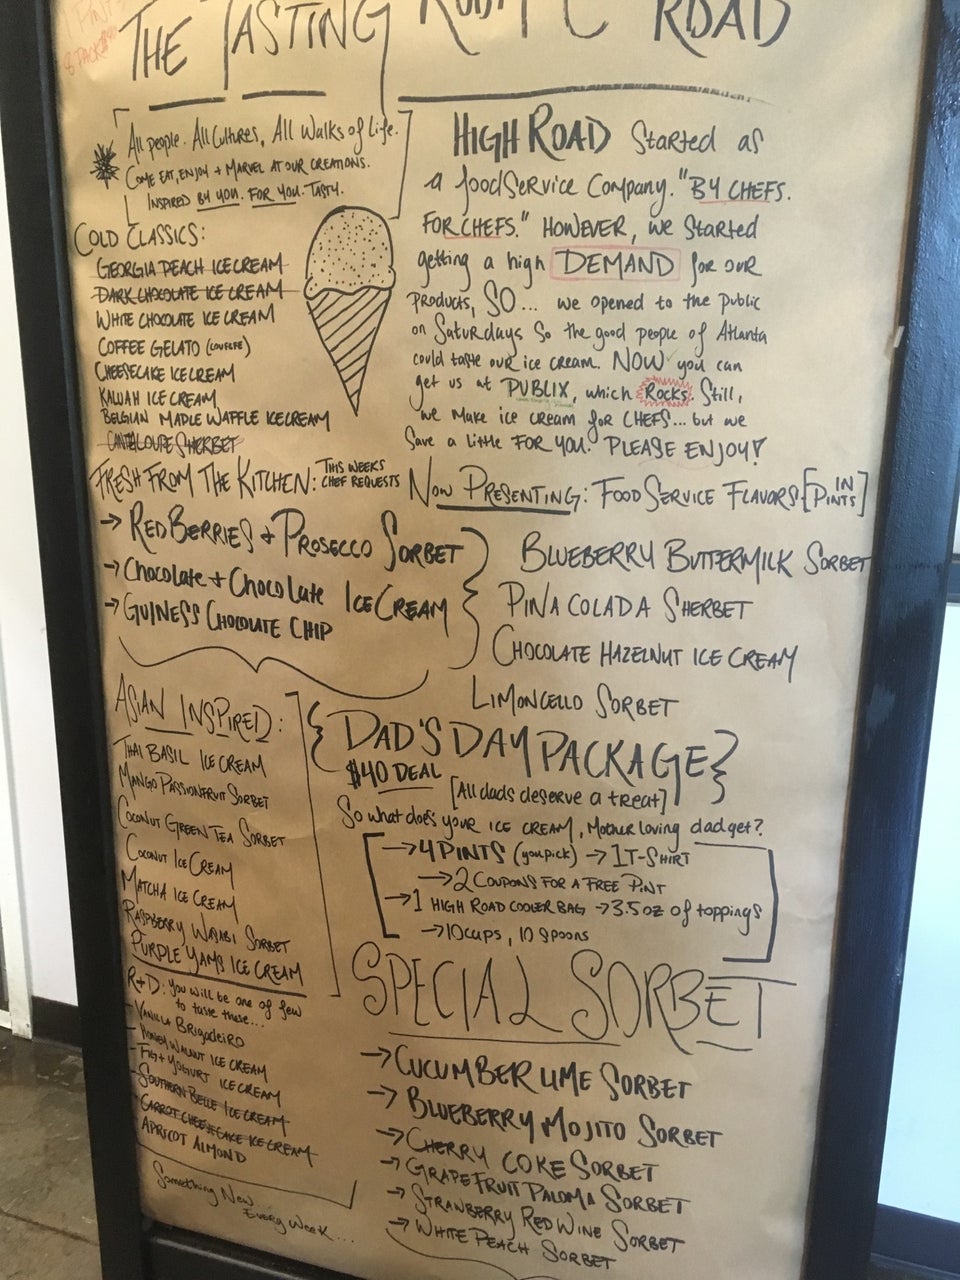 THE TASTING ROOM ROAD
All people. All Cultures, All Walks of Life.
COME EAT, ENJOY + MARVEL AT OUR CREATIONS.
INSPIRED BY YOU. FOR YOU. TASTY.
COLD CLASSICS:
GEORGIA PEACH ICE CREAM
DARK CHOCOLATE ICE CREAM
WHITE CHOCOLATE ICE CREAM
COFFEE GELATO
CHEESECAKE ICE CREAM
KALUAH ICE CREAM
BELGIAN MAPLE WAFFLE ICE CREAM
CANTALOUPE SHERBET
HIGH ROAD Started as
a foodService Company. "BY CHEFS.
FOR CHEFS." HOWEVER, we started
getting a high DEMAND for our
products, SO... we opened to the public
on Saturdays So the good people of Atlanta
could taste our ice cream. NOW you can
get us at PUBLIX, which Rocks. Still,
we make ice cream for CHEFS... but we
Save a little FOR YOU. PLEASE ENJOY!
FRESH FROM THE KITCHEN: THIS WEEKS CHEF REQUESTS
→ RED BERRIES + PROSECCO SORBET
→ Chocolate + Chocolate ICE CREAM
→ GUINESS CHOCOLATE CHIP
NOW PRESENTING: FOOD SERVICE FLAVORS [IN PINTS]
BLUEBERRY BUTTERMILK SORBET
PINA COLADA SHERBET
CHOCOLATE HAZELNUT ICE CREAM
LIMONCELLO SORBET
ASIAN INSPIRED:
THAI BASIL ICE CREAM
MANGO PASSIONFRUIT SORBET
COCONUT GREEN TEA SORBET
COCONUT ICE CREAM
MATCHA ICE CREAM
RASPBERRY WASABI SORBET
PURPLE YAMS ICE CREAM
R+D: you will be one of few
to taste these...
- VANILLA BRIGADEIRO
- HONEY WALNUT ICE CREAM
- FIG + YOGURT ICE CREAM
- SOUTHERN BELLE ICE CREAM
- CARROT CHEESECAKE ICE CREAM
- APRICOT ALMOND
Something New
Every Week...
{DAD'S DAY PACKAGE}
$40 DEAL [All dads deserve a treat]
So what does your ICE CREAM, Mother loving dad get?
→ 4 PINTS (you pick) → 1 T-SHIRT
→ 2 COUPONS FOR A FREE PINT
→ 1 HIGH ROAD COOLER BAG → 3.5 oz of toppings
→ 10 cups, 10 spoons
SPECIAL SORBET
→ CUCUMBER LIME SORBET
→ BLUEBERRY MOJITO SORBET
→ CHERRY COKE SORBET
→ GRAPEFRUIT PALOMA SORBET
→ STRAWBERRY RED WINE SORBET
→ WHITE PEACH SORBET